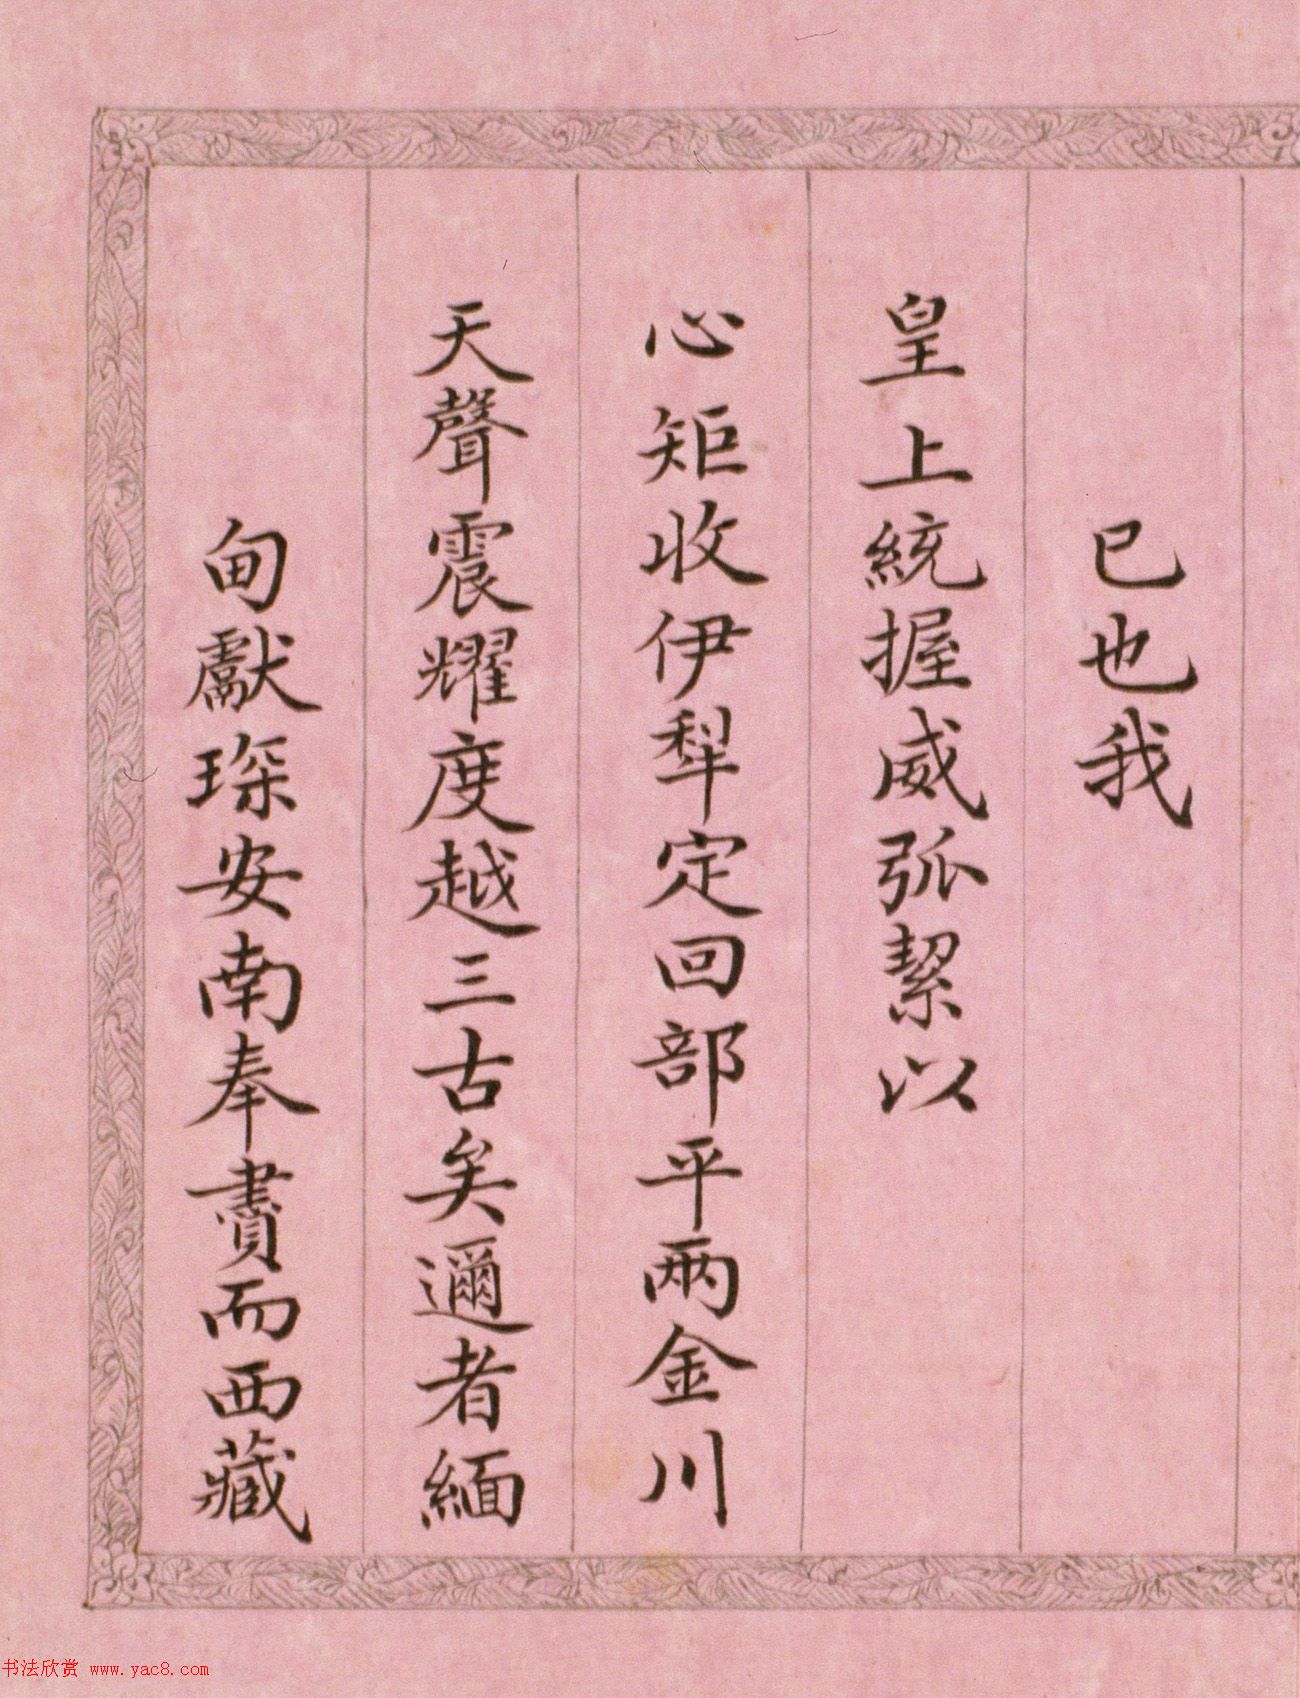 已也我
皇上統握威弧絜以
心矩收伊犁定回部平兩金川
天聲震耀度越三古矣邇者緬
甸獻琛安南奉賮而西藏
书法欣赏 www.yac8.com